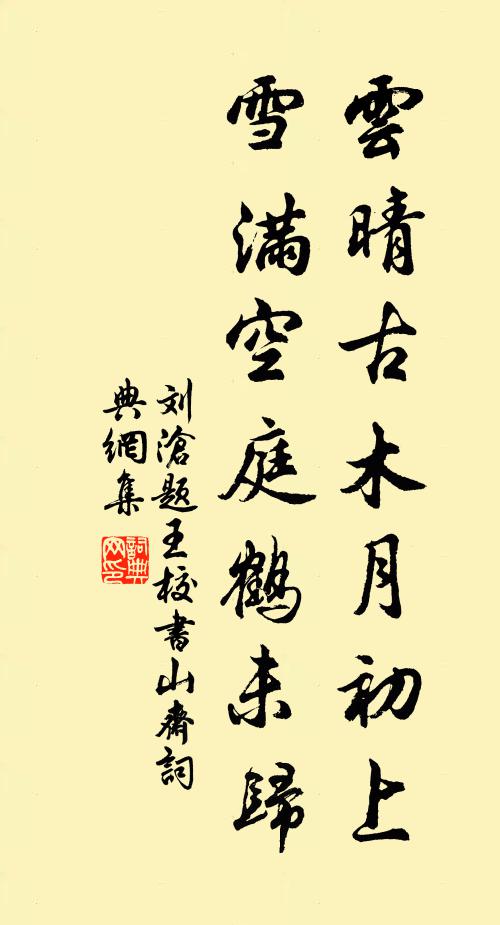 雲晴古木月初上
雪滿空庭鶴未歸
刘滄題王校書山齋詞
典網集
詞典網印